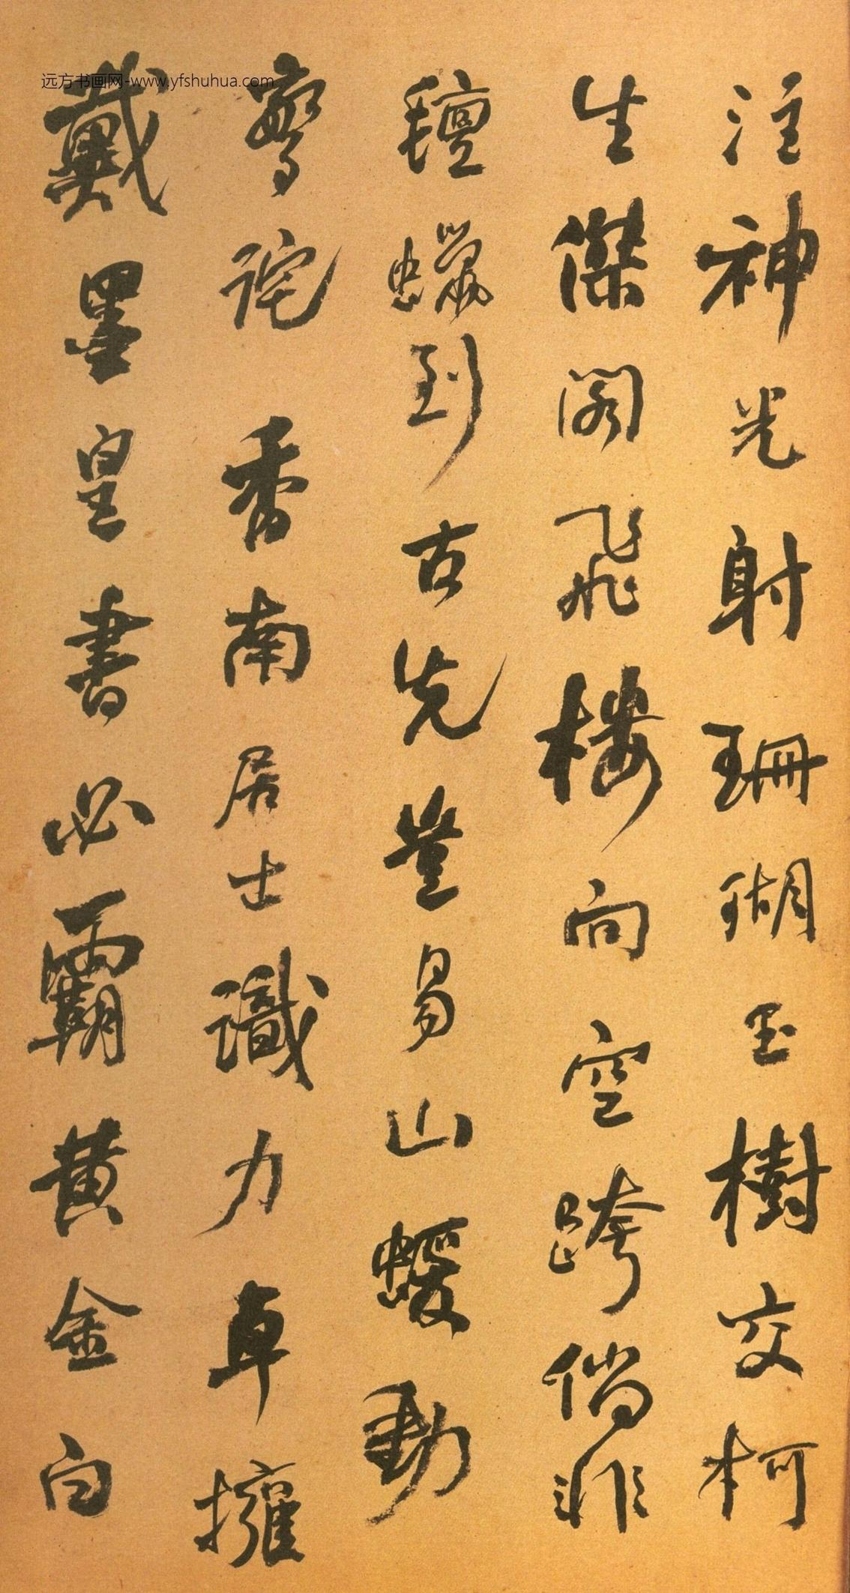 注神光射珊瑚玉樹交柯
生傑閣飛樓向空跨倘非
氊蠟到古先豈易山蝯動
驚詫香南居士識力卓擁
戴墨皇書必霸黃金白
远方书画网-www.yfshuhua.com